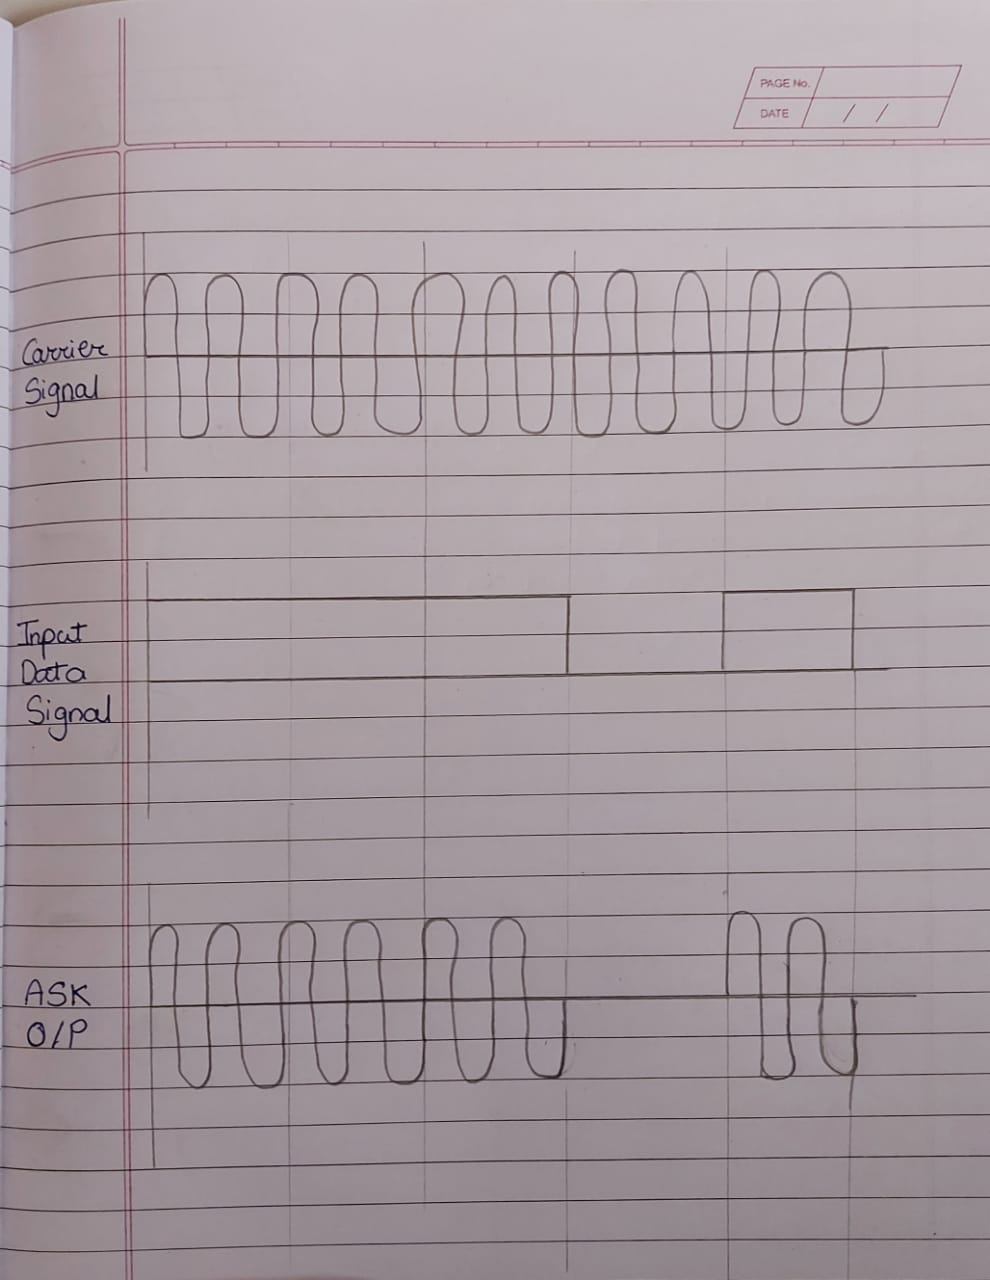 PAGE No.
DATE / /
Carrier
Signal
Input
Data
Signal
ASK
O/P